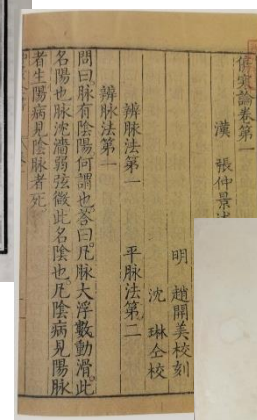 傷寒論卷第一
漢 張仲景
明 趙開美校刻
沈 琳仝校
辨脉法第一 平脉法第二
辨脉法第一
問曰脉有陰陽何謂也答曰凡脉大浮數動滑此
名陽也脉沈濇弱弦微此名陰也凡陰病見陽脉
者生陽病見陰脉者死